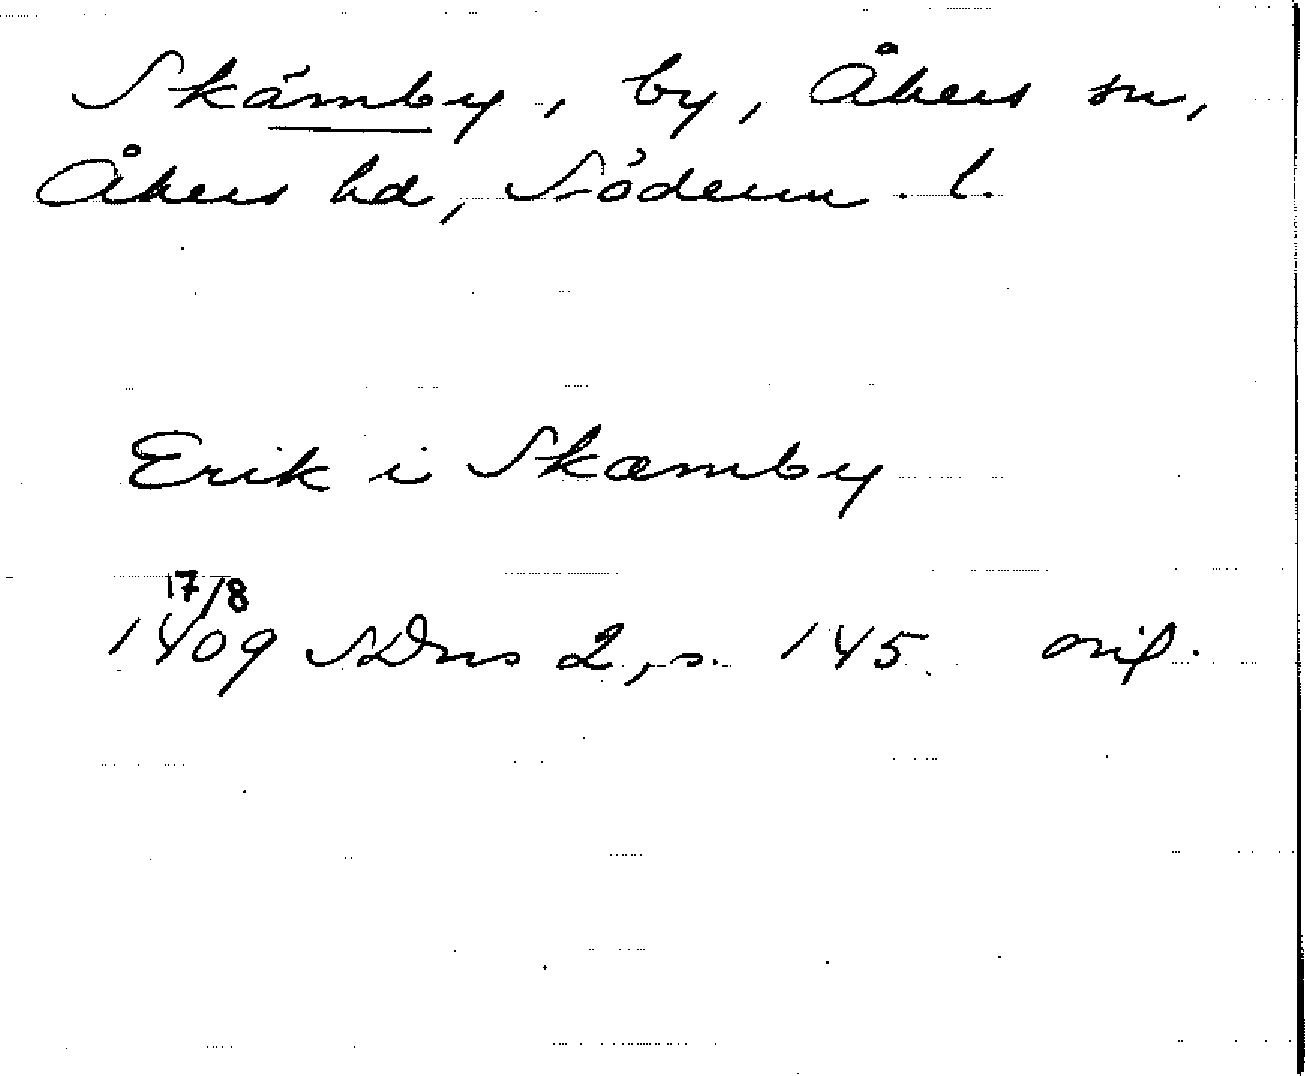 Skämby, by, Åkers sn,
Åkers hd, Söderm. l.
Erik i Skæmby
17/8
1409 SDns 2, s. 145 orig.